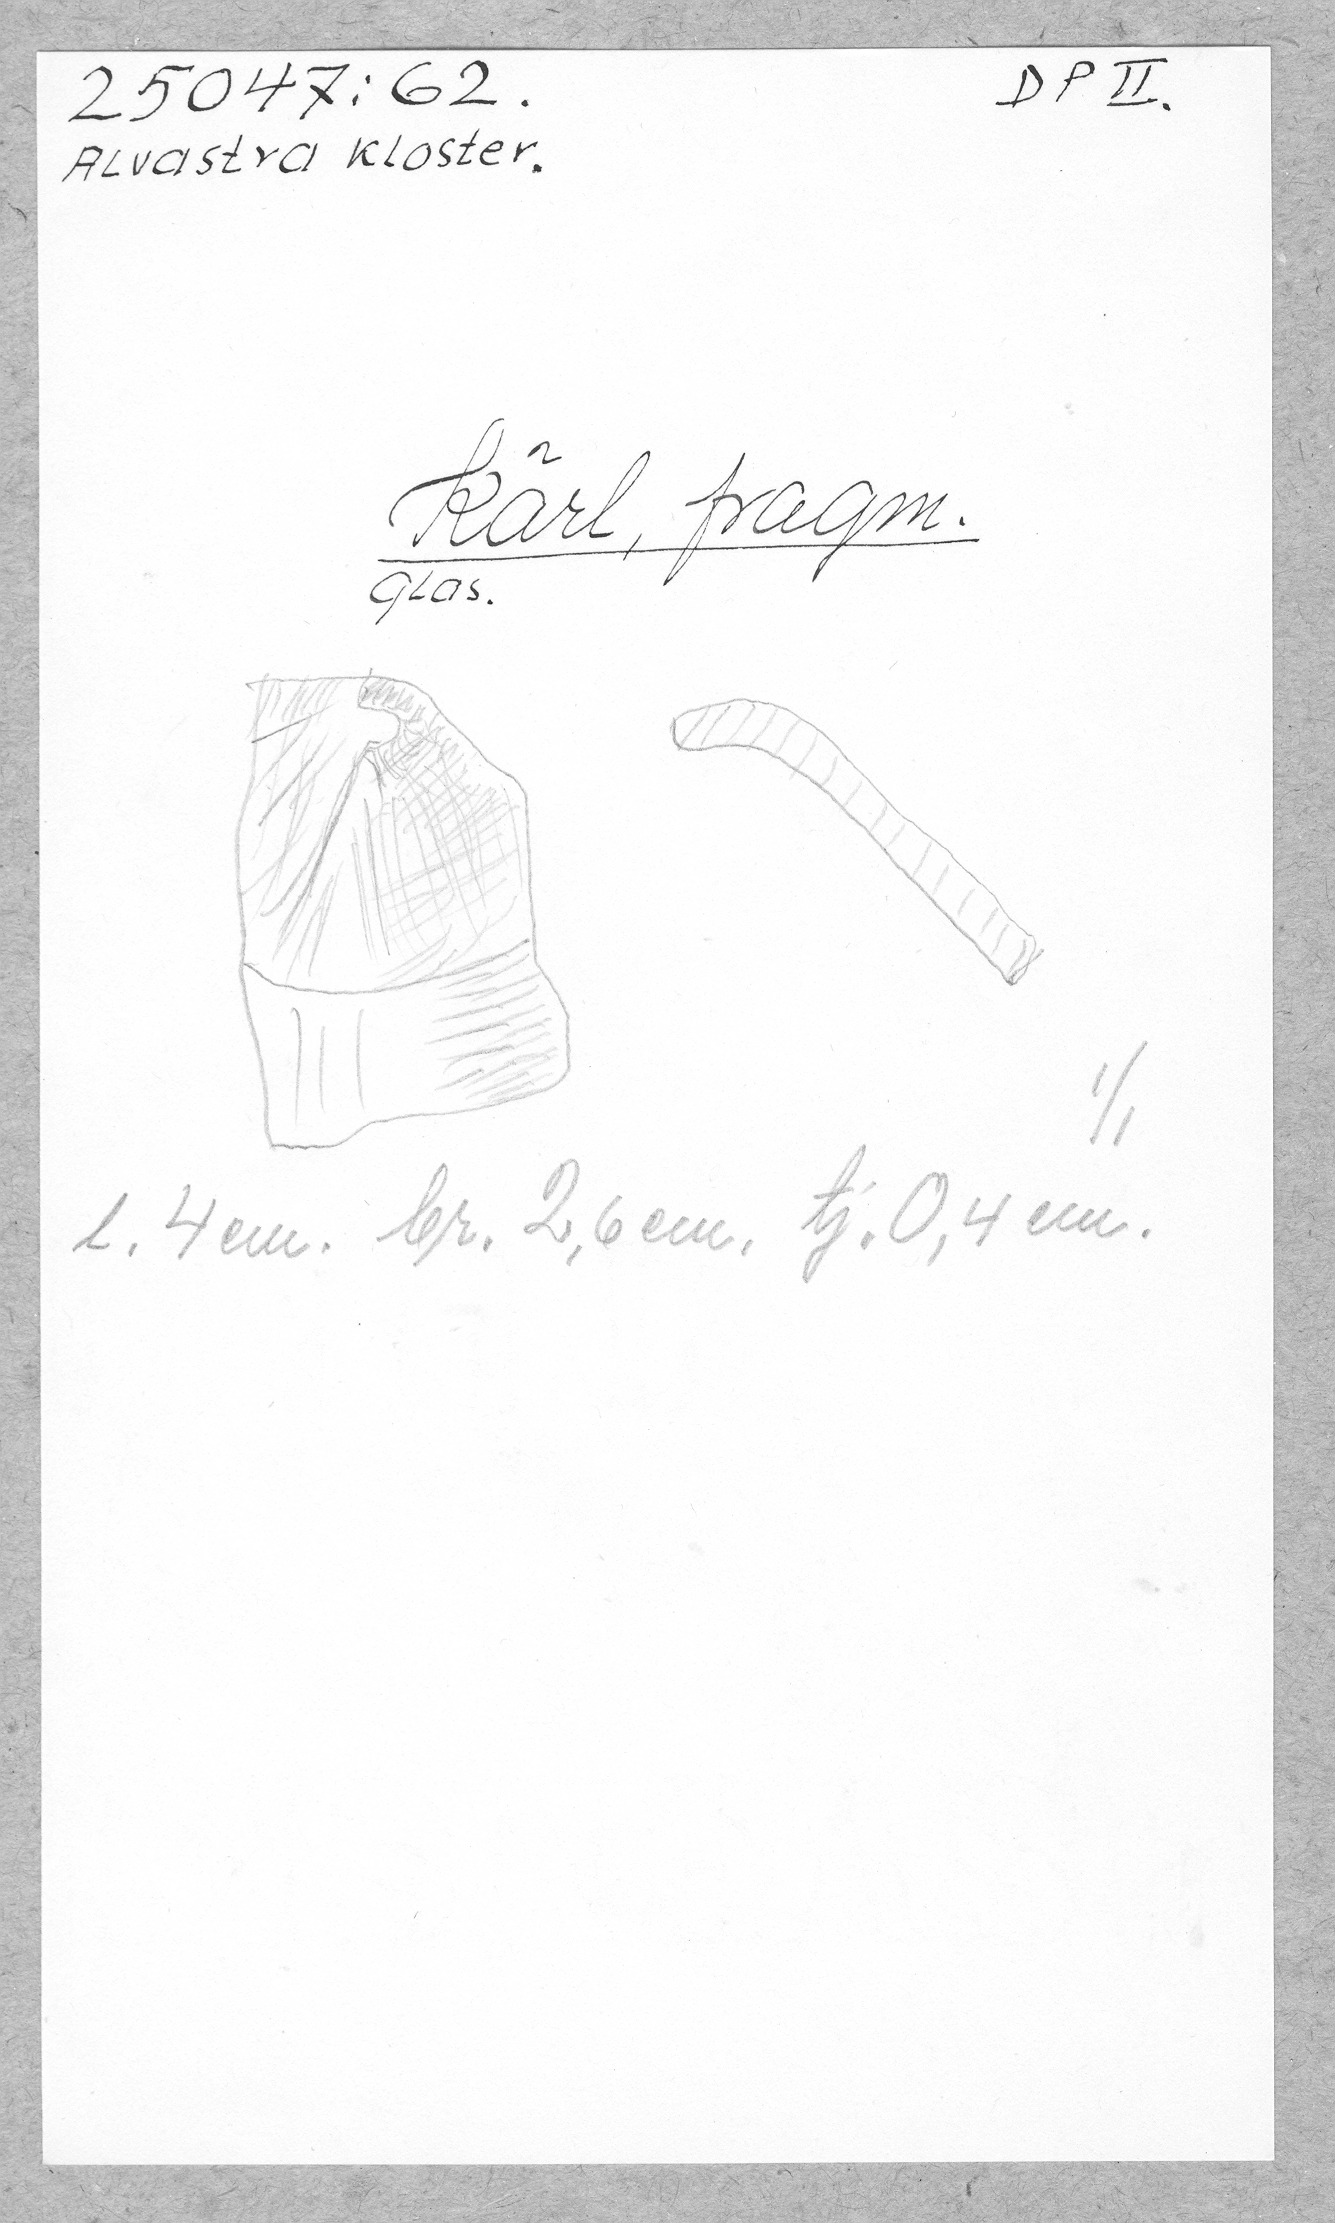 25047:62.
DP II.
Alvastra kloster.
Kärl, fragm.
Glas.
1/1
l. 4 cm. br. 2,6 cm. tj. 0,4 cm.